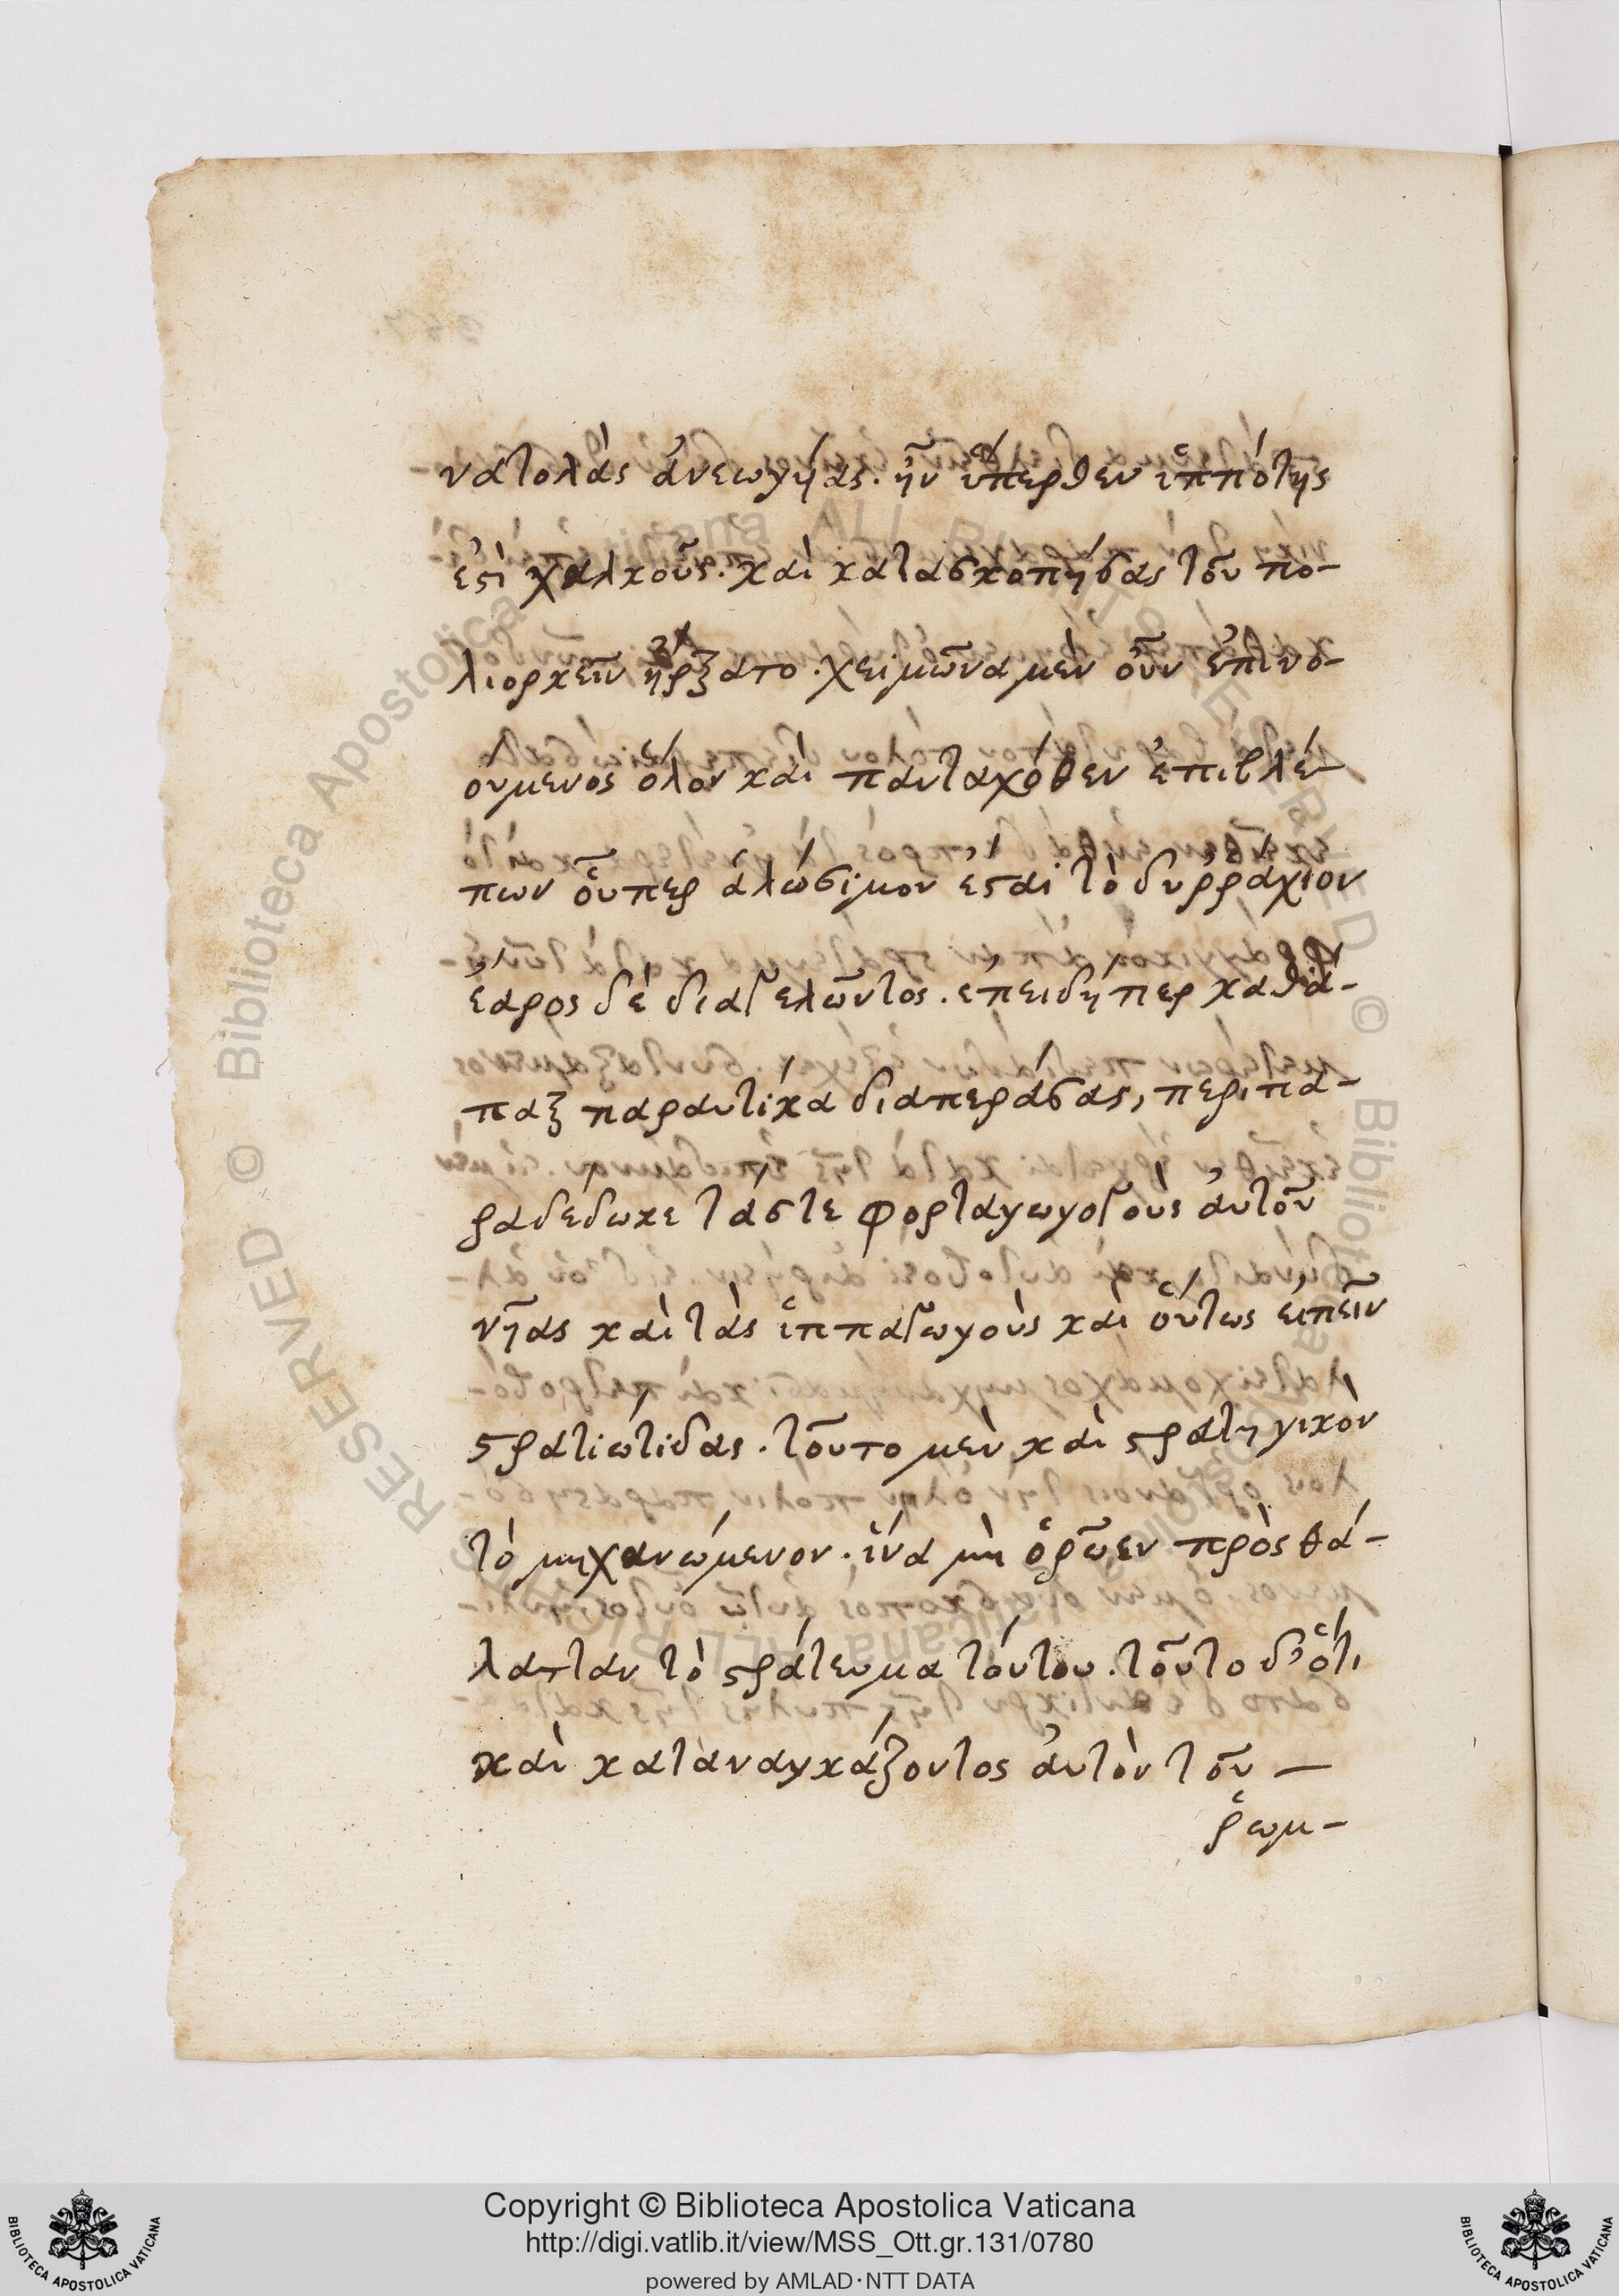 νατολὰς ἀνεωγῆας. ἦν ὕπερθεν ἱππότης
ἐστὶ χαλκοῦς. καὶ κατασκοπήσας τοῦ πο-
λιορκεῖν ἤρξατο. χειμῶνα μὲν οὖν ἐπινο-
ούμενος ὅλον καὶ πανταχόθεν ἐπιβλέ-
πων οὗπερ ἁλώσιμον ἔσται τὸ δυρράχιον
ἔαρος δὲ διαγελῶντος. ἐπειδήπερ καθά-
παξ παραυτίκα διαπεράσας, περιπα-
ραδέδωκε τάς τε φορταγωγοὺς αὐτοῦ
νῆας καὶ τὰς ἱππαγωγοὺς καὶ οὕτως εἰπεῖν
στρατιώτιδας. τοῦτο μὲν καὶ στρατηγικὸν
τὸ μηχανώμενον. ἵνα μὴ ὁρῷεν πρὸς θά-
λατταν τὸ στράτευμα τούτου. τοῦτο δ' ὅτι
καὶ καταναγκάζοντος αὐτὸν τοῦ
ῥωμ-
Copyright © Biblioteca Apostolica Vaticana
http://digi.vatlib.it/view/MSS_Ott.gr.131/0780
powered by AMLAD·NTT DATA
BIBLIOTECA APOSTOLICA VATICANA
BIBLIOTECA APOSTOLICA VATICANA